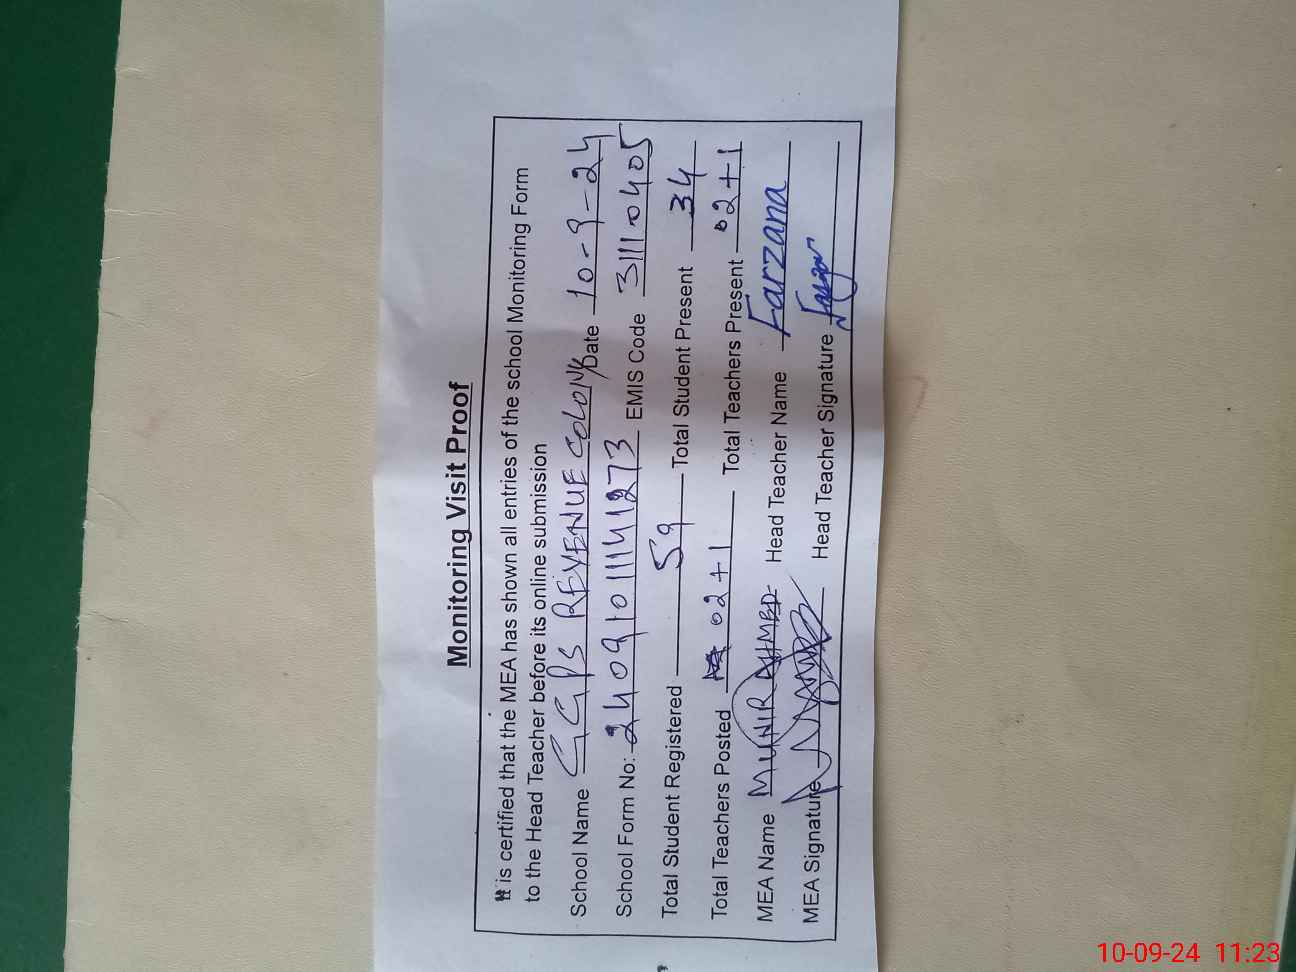 Monitoring Visit Proof
It is certified that the MEA has shown all entries of the school Monitoring Form
to the Head Teacher before its online submission
School Name GGPS REVENUE COLONY Date 10-9-24
School Form No: 24091011141273 EMIS Code 31110405
Total Student Registered 59 Total Student Present 34
Total Teachers Posted 02+1 Total Teachers Present 02+1
MEA Name MUNIR AHMED Head Teacher Name Farzana
MEA Signature Head Teacher Signature
10-09-24 11:23